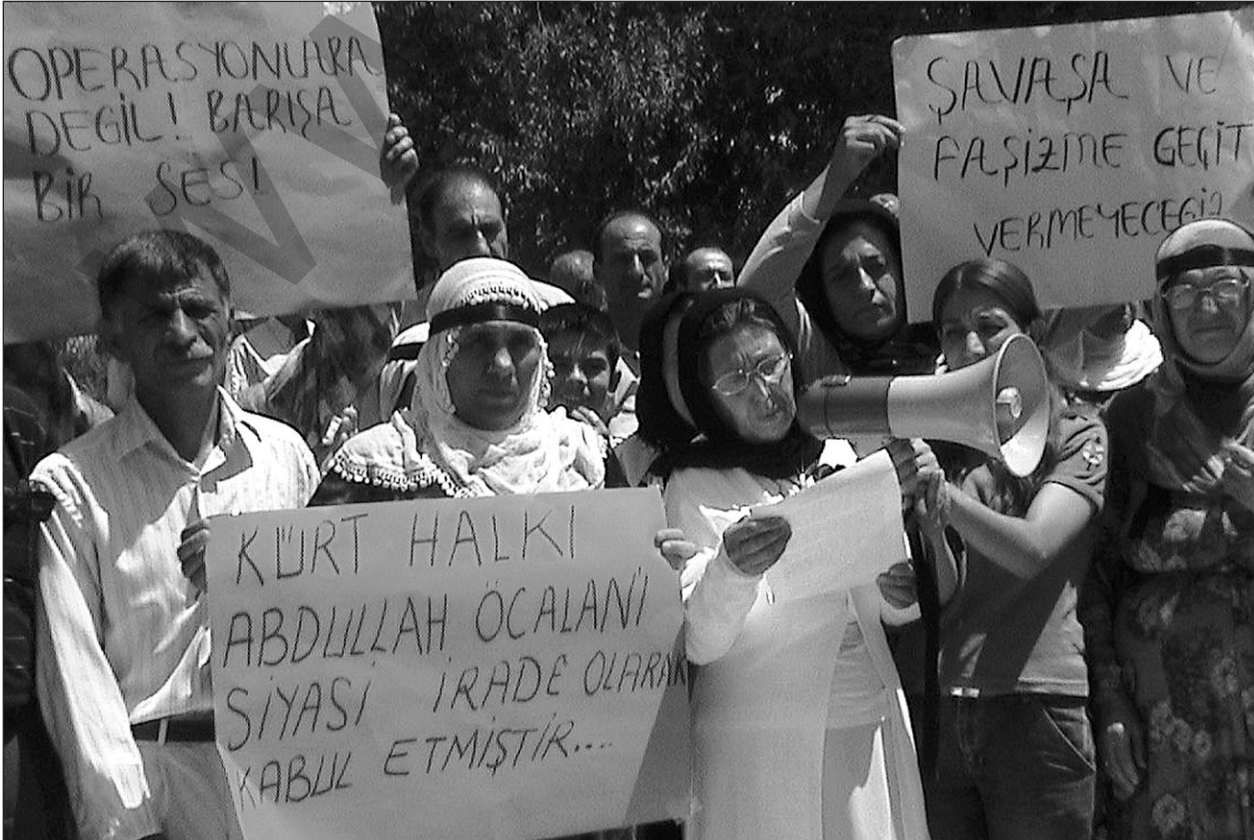 OPERASYONLARA
DEGİL! BARIŞA
BİR SES!
ŞAVAŞA VE
FAŞİZME GEÇİT
VERMEYECEGİZ
KÜRT HALKI
ABDULLAH ÖCALANİ
SİYASİ İRADE OLARAK
KABUL ETMİŞTİR....